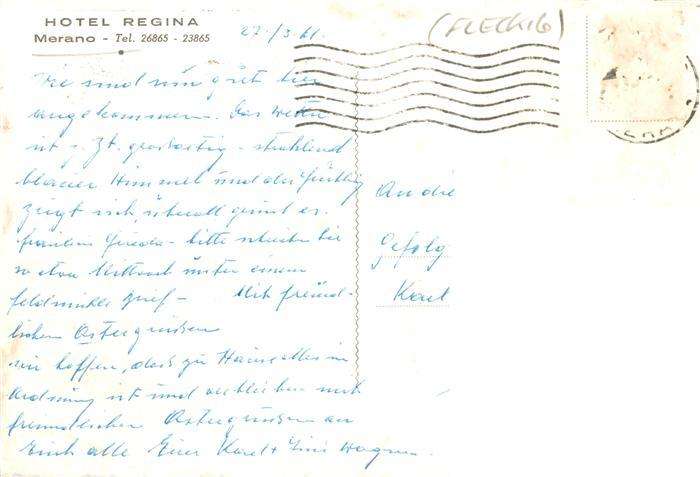 HOTEL REGINA
Merano - Tel. 26865 - 23865
27./3.61.
(FLECKIG)
Wir sind nun gut hier
angekommen. Das Wetter
ist z. Zt. grossartig - strahlend
blauer Himmel und der Frühling
zeigt sich, überall grünt es.
Fräulein - bitte schreiben Sie
so etwa Mittwoch unter einem
Mit freund-
lichen Ostergrüssen
wir hoffen, dass zu Hause alles in
Ordnung ist und verbleiben mit
freundlichen Ostergrüssen an
Euch alle Eure Karl + Wagner.
An die
Gefolg